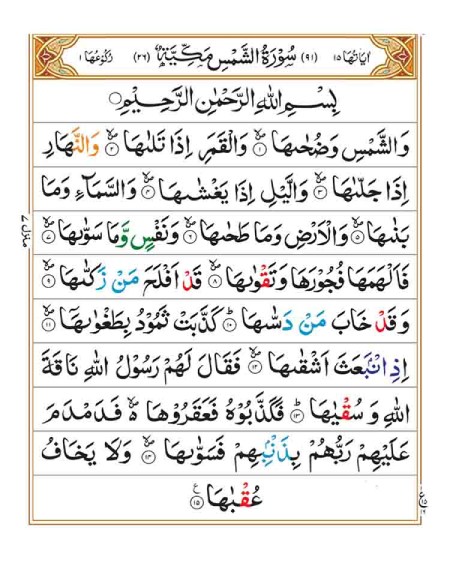 اٰیَاتُهَا ١٥ (٩١) سُوْرَةُ الشَّمْسِ مَكِّيَّةٌ (٢٦) رُكُوْعُهَا ١
بِسْمِ اللّٰهِ الرَّحْمٰنِ الرَّحِيْمِ
وَالشَّمْسِ وَضُحٰىهَا ۙ﴿١﴾ وَالْقَمَرِ اِذَا تَلٰىهَا ۙ﴿٢﴾ وَالنَّهَارِ
اِذَا جَلّٰىهَا ۙ﴿٣﴾ وَالَّيْلِ اِذَا يَغْشٰىهَا ۙ﴿٤﴾ وَالسَّمَآءِ وَمَا
بَنٰىهَا ۙ﴿٥﴾ وَالْاَرْضِ وَمَا طَحٰىهَا ۙ﴿٦﴾ وَنَفْسٍ وَّمَا سَوّٰىهَا ۙ﴿٧﴾
فَاَلْهَمَهَا فُجُوْرَهَا وَتَقْوٰىهَا ۙ﴿٨﴾ قَدْ اَفْلَحَ مَنْ زَكّٰىهَا ۙ﴿٩﴾
وَقَدْ خَابَ مَنْ دَسّٰىهَا ؕ﴿١٠﴾ كَذَّبَتْ ثَمُوْدُ بِطَغْوٰىهَاۤ ۙ﴿١١﴾
اِذِ انْۢبَعَثَ اَشْقٰىهَا ۙ﴿١٢﴾ فَقَالَ لَهُمْ رَسُوْلُ اللّٰهِ نَاقَةَ
اللّٰهِ وَسُقْيٰهَا ؕ﴿١٣﴾ فَكَذَّبُوْهُ فَعَقَرُوْهَا ۙ۬ فَدَمْدَمَ
عَلَيْهِمْ رَبُّهُمْ بِذَنْۢبِهِمْ فَسَوّٰىهَا ۙ﴿١٤﴾ وَلَا يَخَافُ
عُقْبٰهَا ﴿١٥﴾ ع
منزل ٧